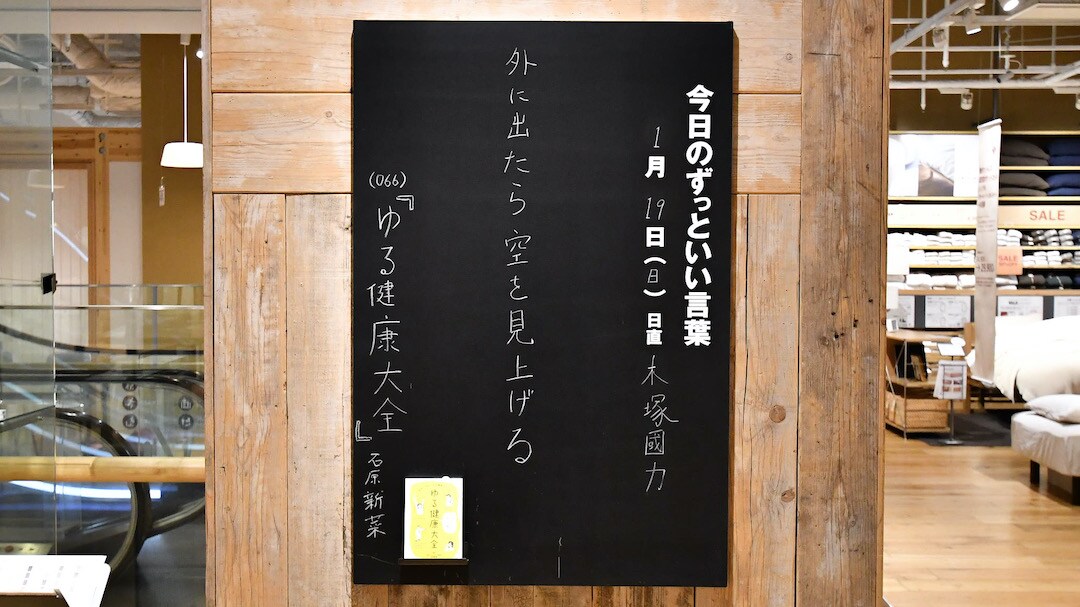 今日のずっといい言葉
1月19日(日)日直 木塚國力
外に出たら空を見上げる
(066)『ゆる健康大全』石原新菜
ゆる健康大全
SALE
SALE